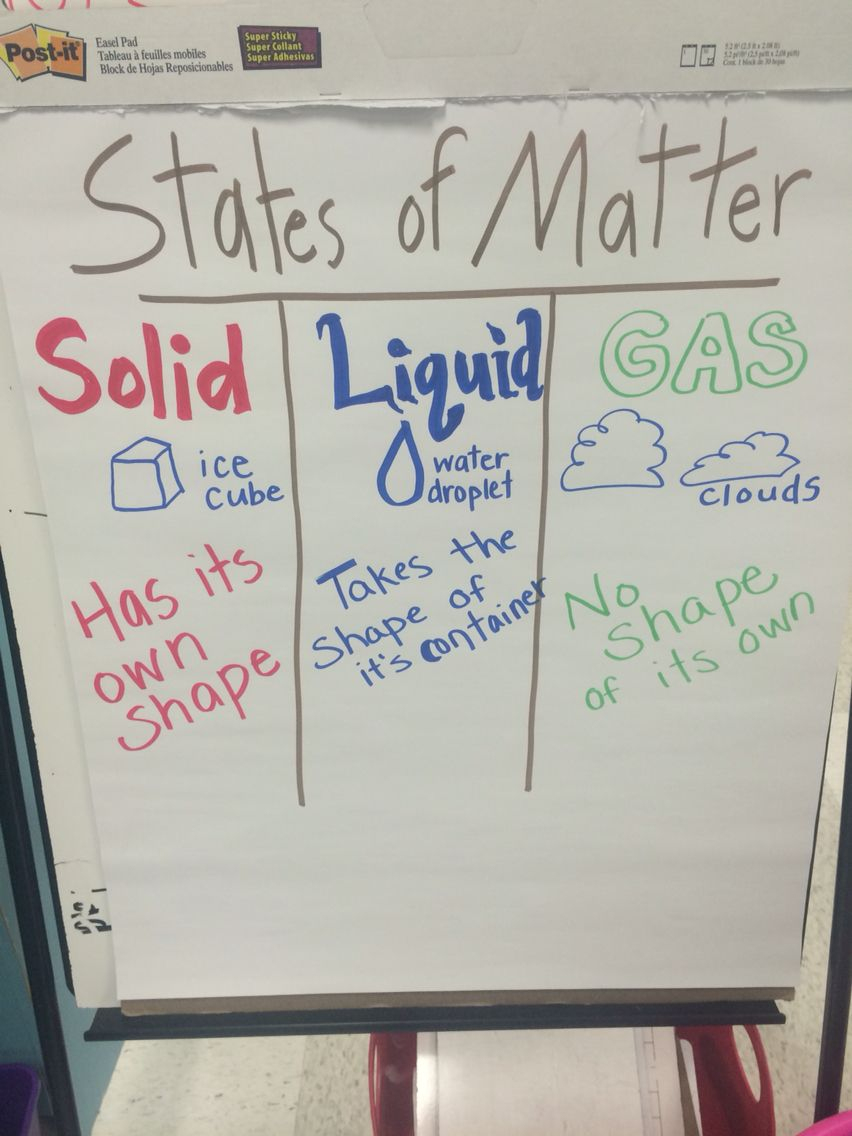 Post-it
Easel Pad
Tableau à feuilles mobiles
Block de Hojas Reposicionables
Super Sticky
Super Collant
Super Adhesivas
States of Matter
Solid
ice
cube
Has its
own
shape
Liquid
water
droplet
Takes the
shape of
it's container
GAS
clouds
No
shape
of its own